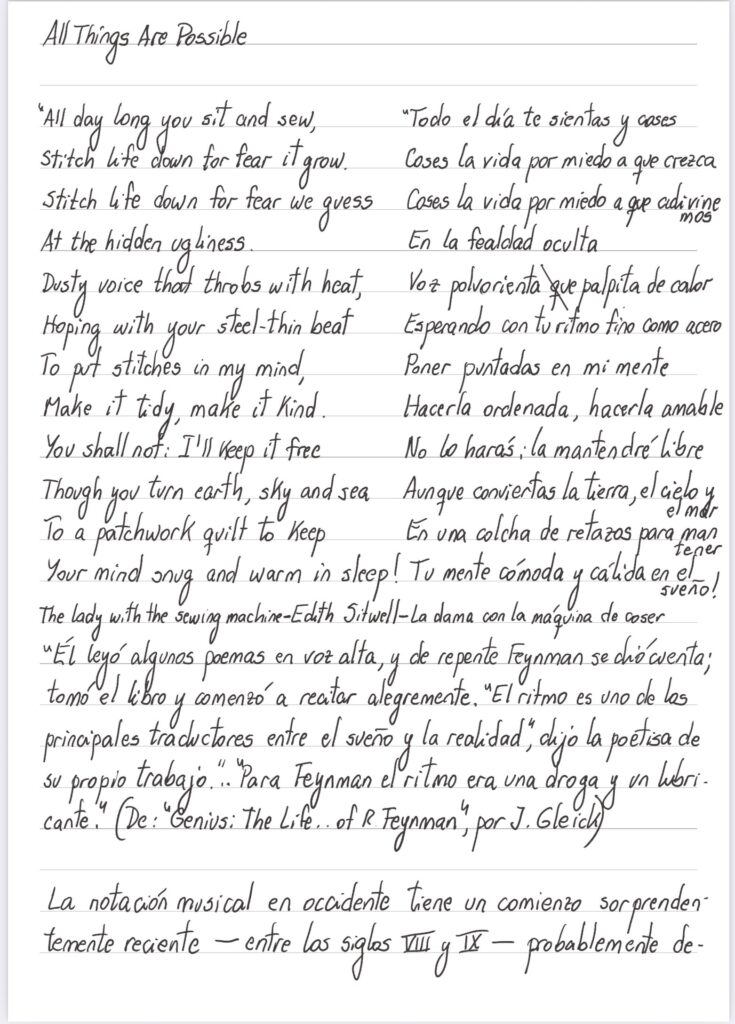 All Things Are Possible
"All day long you sit and sew,
Stitch life down for fear it grow.
Stitch life down for fear we guess
At the hidden ugliness.
Dusty voice that throbs with heat,
Hoping with your steel-thin beat
To put stitches in my mind,
Make it tidy, make it kind.
You shall not: I'll keep it free
Though you turn earth, sky and sea
To a patchwork quilt to keep
Your mind snug and warm in sleep!
"Todo el día te sientas y coses
Coses la vida por miedo a que crezca
Coses la vida por miedo a que adivine
mos
En la fealdad oculta
Voz polvorienta que palpita de calor
Esperando con tu ritmo fino como acero
Poner puntadas en mi mente
Hacerla ordenada, hacerla amable
No lo harás; la mantendré libre
Aunque conviertas la tierra, el cielo y
el mar
En una colcha de retazos para man
tener
Tu mente cómoda y cálida en el
sueño!
The lady with the sewing machine-Edith Sitwell-La dama con la máquina de coser
"Él leyó algunos poemas en voz alta, y de repente Feynman se dió cuenta;
tomó el libro y comenzó a recitar alegremente. "El ritmo es uno de los
principales traductores entre el sueño y la realidad", dijo la poetisa de
su propio trabajo.". "Para Feynman el ritmo era una droga y un lubri-
cante." (De: "Genius: The Life.. of R. Feynman", por J. Gleick)
La notación musical en occidente tiene un comienzo sorprenden-
temente reciente — entre los siglos VIII y IX — probablemente de-